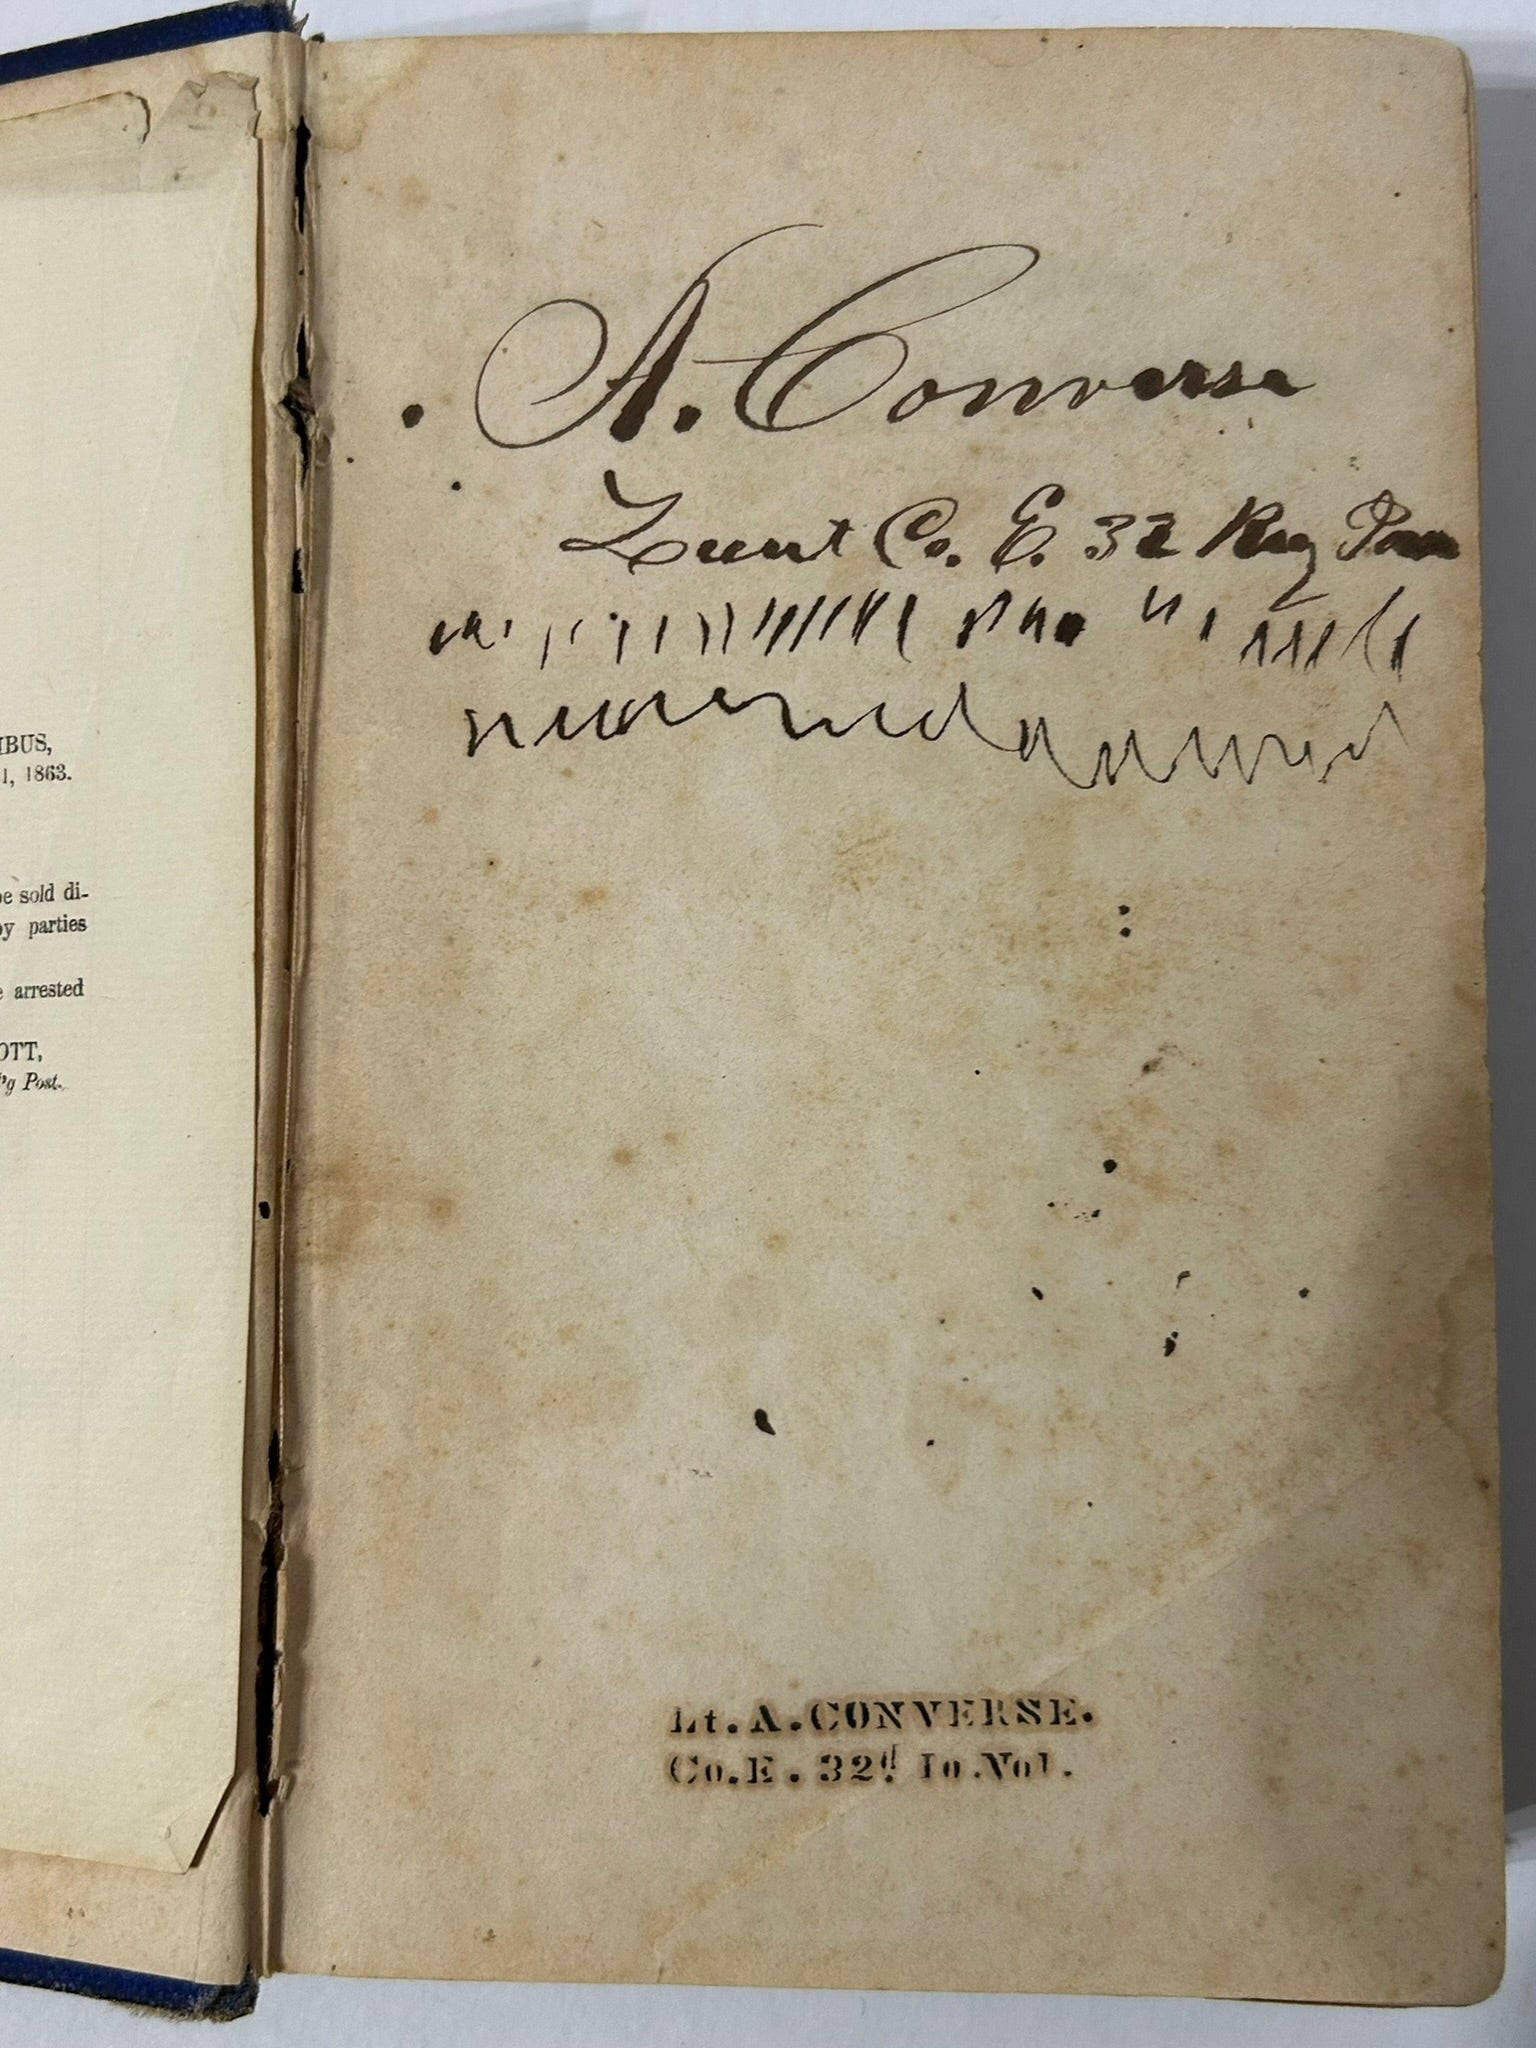 IBUS,
1, 1863.
be sold di-
by parties
e arrested
OTT,
'g Post.
A. Converse
Lieut Co. E. 32 Reg Iowa
Lt. A. CONVERSE.
Co. E. 32d Io. Vol.